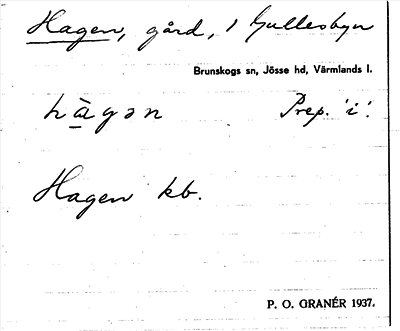 Hagen, gård, i Gullesbyn
Brunskogs sn, Jösse hd, Värmlands l.
hàgən Prep. 'i'.
Hagen kb.
P. O. GRANÉR 1937.